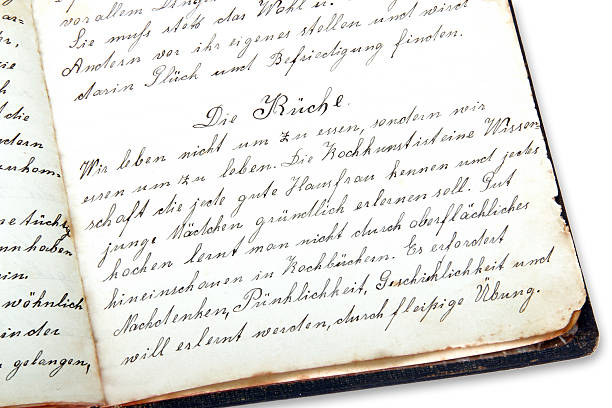 ar-
vor allem Dingen
Sie muss stets das Wohl u.
Andern vor ihr eigenes stellen und wird
darin Glück und Befriedigung finden.
Die Küche.
Wir leben nicht um zu essen, sondern wir
essen um zu leben. Die Kochkunst ist eine Wissen-
schaft die jede gute Hausfrau kennen und jedes
junge Mädchen gründlich erlernen soll. Gut
kochen lernt man nicht durch oberflächliches
hineinschauen in Kochbüchern. Es erfordert
Nachdenken, Pünktlichkeit, Geschicklichkeit und
will erlernt werden, durch fleißige Übung.
die
ndern
ne tüchtig
nn haben
in.
wöhnlich
in der
gelangen,